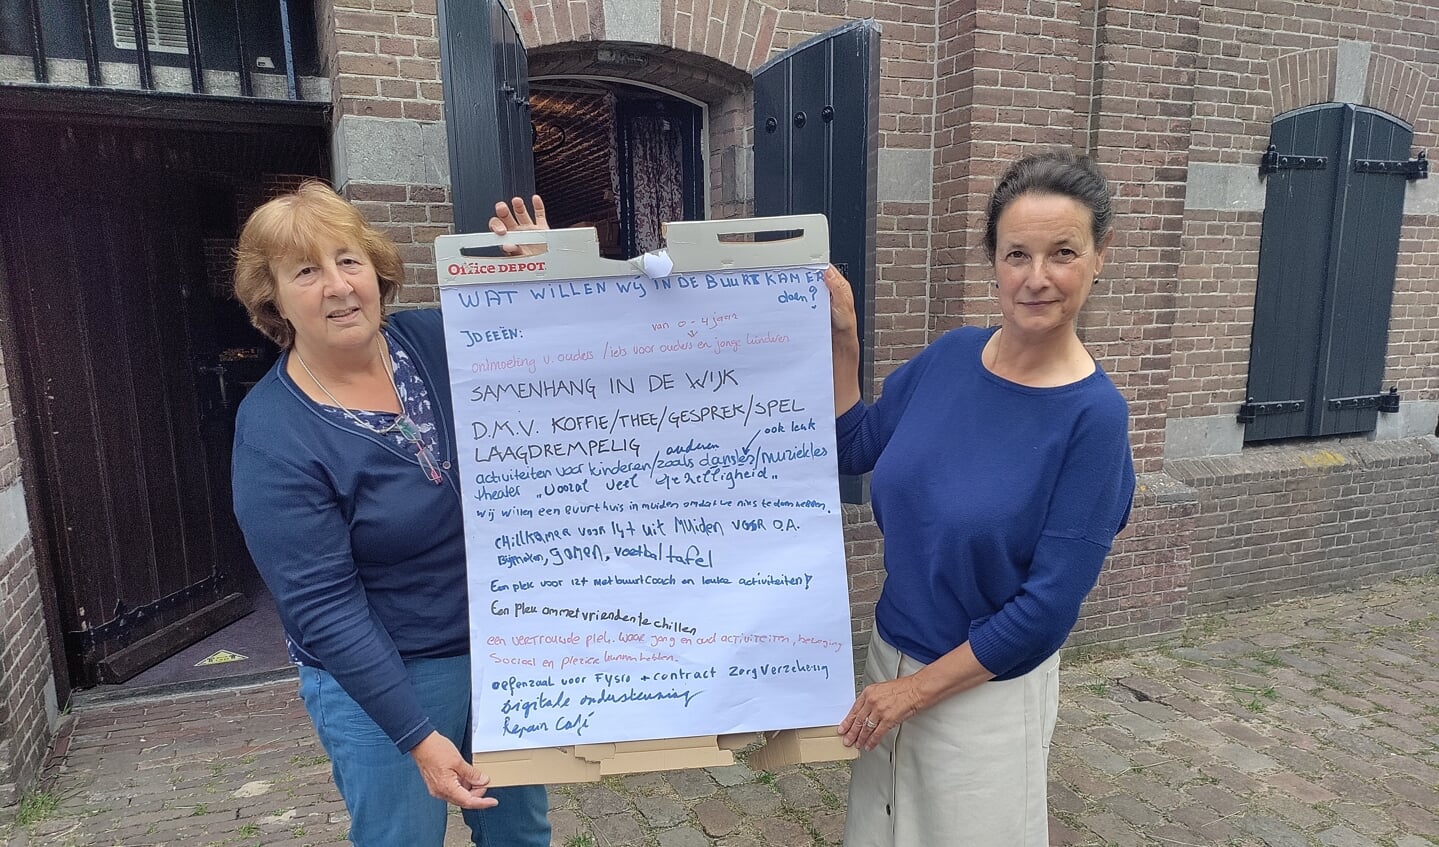 Office DEPOT
WAT WILLEN WIJ IN DE BUURTKAMER
doen?
IDEEËN:
van 0-4 jaar
ontmoeting v. ouders / iets voor ouders en jonge kinderen
SAMENHANG IN DE WIJK
D.M.V. KOFFIE/THEE/GESPREK/SPEL
LAAGDREMPELIG
ouderen
ook leuk
activiteiten voor kinderen/zoals dansles/muziekles
theater "vooral veel gezelligheid"
wij willen een Buurthuis in muiden omdat we niks te doen hebben.
chillkamer voor 14+ uit Muiden voor O.A.
Bijpraten, gamen, voetbaltafel
Een plek voor 12+ met buurtcoach en leuke activiteiten!
Een plek om met vrienden te chillen
een vertrouwde plek. waar jong en oud activiteiten, beweging
Sociaal en plezier kunnen hebben.
oefenzaal voor Fysio + contract Zorgverzekering
Digitale ondersteuning
Repair Café